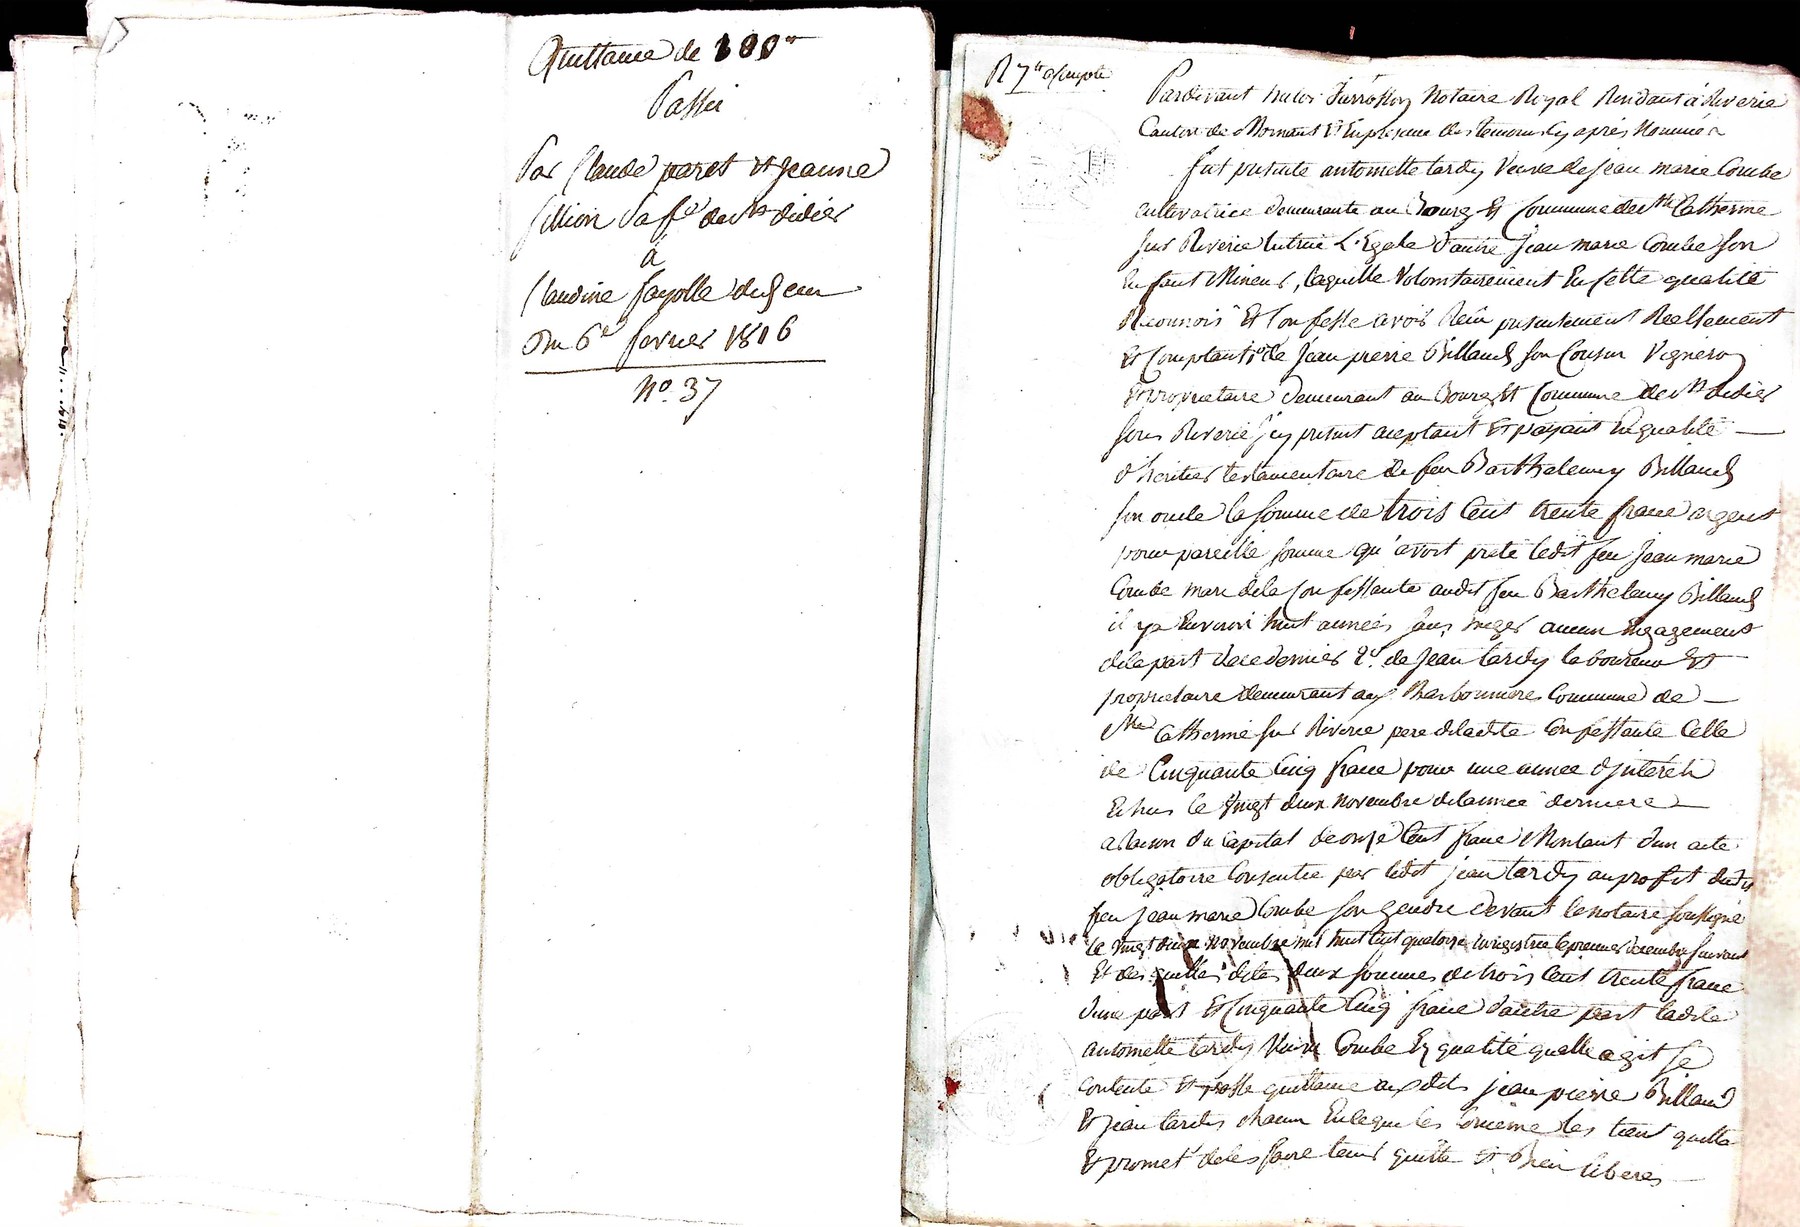 Quittance de 300
Passée
Par Claude paret et Jeanne
fillion Sa fe de st didier
à
Claudine fayolle du
Du 6e fevrier 1816
No. 37
R 7
Pardevant notaire Royal Residant à Riverie
Canton de Mornant Et En presence des temoins Cy après Nommés
fut presente antoinette tardy Veuve de Jean marie Combe
cultivatrice demeurante au Bourg Et Commune de ste Catherine
sur Riverie tutrice L'Egale d'autre Jean marie Combe son
Enfant Mineur, laquelle Volontairement En cette qualité
Reconnois Et Confesse avoir Reçu presentement Reellement
Et Comptant de Jean pierre Billaud son Cousin Vigneron
Et proprietaire demeurant au Bourg Et Commune de st didier
sous Riverie Icy present aceptant Et payant En qualité
d'heritier testamentaire de feu Barthelemy Billaud
son oncle la somme de trois Cent trente franc argent
pour pareille somme qu'avoit preté ledit feu Jean marie
Combe mari de la Confessante audit feu Barthelemy Billaud
il ya Environ huit années sans Exiger aucun Engagement
de la part de ce dernier 2e. de Jean tardy laboureur Et
proprietaire demeurant au Charbonnieres Commune de
Ste Catherine sur Riverie pere de ladite Confessante Celle
de Cinquante Cinq franc pour une année d'Intérêt
Echus le Vingt deux novembre de l'année derniere
a Raison du Capital de onze Cent franc Montant d'un acte
obligatoire Consentie par ledit jean tardy au profit dudit
feu Jean marie Combe son gendre devant le notaire soussigné
le vingt deux novembre mil huit Cent quatorze Enregistrée le premier decembre suivant
Et des quelles dites deux sommes de trois Cent trente franc
d'une part Et Cinquante Cinq franc d'autre part ladite
antoinette tardy Veuve Combe En qualité quelle agit se
contente Et passe quittance aux dits jean pierre Billaud
Et Jean tardy chacun En ce qui les Concerne les tient quitte
Et promet de les faire tenir quitte Et Bien liberes